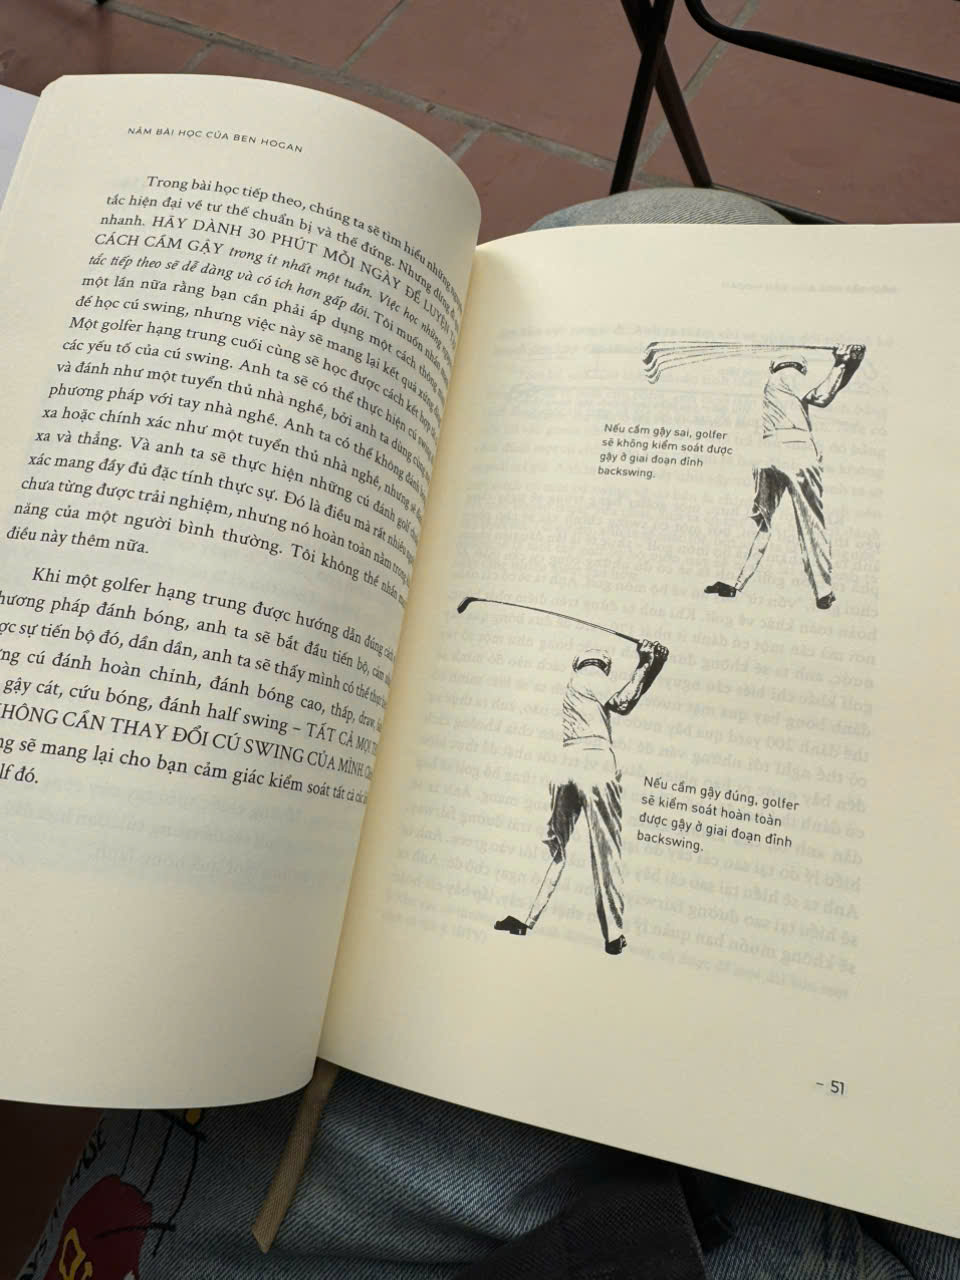 NĂM BÀI HỌC CỦA BEN HOGAN
Trong bài học tiếp theo, chúng ta sẽ tìm hiểu những
tắc hiện đại về tư thế chuẩn bị và thế đứng. Nhưng đừng
nhanh. HÃY DÀNH 30 PHÚT MỖI NGÀY ĐỂ LUYỆN
CÁCH CẦM GẬY trong ít nhất một tuần. Việc học những
tắc tiếp theo sẽ dễ dàng và có ích hơn gấp đôi. Tôi muốn nhấn
một lần nữa rằng bạn cần phải áp dụng một cách thông
để học cú swing, nhưng việc này sẽ mang lại kết quả xứng
Một golfer hạng trung cuối cùng sẽ học được cách kết hợp
các yếu tố của cú swing. Anh ta sẽ có thể thực hiện cú swing
và đánh như một tuyển thủ nhà nghề, bởi anh ta dùng cùng
phương pháp với tay nhà nghề. Anh ta có thể không đánh
xa hoặc chính xác như một tuyển thủ nhà nghề, nhưng sẽ
xa và thẳng. Và anh ta sẽ thực hiện những cú đánh golf
xác mang đầy đủ đặc tính thực sự. Đó là điều mà rất nhiều
chưa từng được trải nghiệm, nhưng nó hoàn toàn nằm trong
năng của một người bình thường. Tôi không thể nhấn
điều này thêm nữa.
Khi một golfer hạng trung được hướng dẫn đúng
phương pháp đánh bóng, anh ta sẽ bắt đầu tiến bộ, cảm
sự tiến bộ đó, dần dần, anh ta sẽ thấy mình có thể thực
cú đánh hoàn chỉnh, đánh bóng cao, thấp, draw,
gậy cát, cứu bóng, đánh half swing – TẤT CẢ MỌI
KHÔNG CẦN THAY ĐỔI CÚ SWING CỦA MÌNH.
sẽ mang lại cho bạn cảm giác kiểm soát tất cả các
đó.
Nếu cầm gậy sai, golfer
sẽ không kiểm soát được
gậy ở giai đoạn đỉnh
backswing.
Nếu cầm gậy đúng, golfer
sẽ kiểm soát hoàn toàn
được gậy ở giai đoạn đỉnh
backswing.
– 51